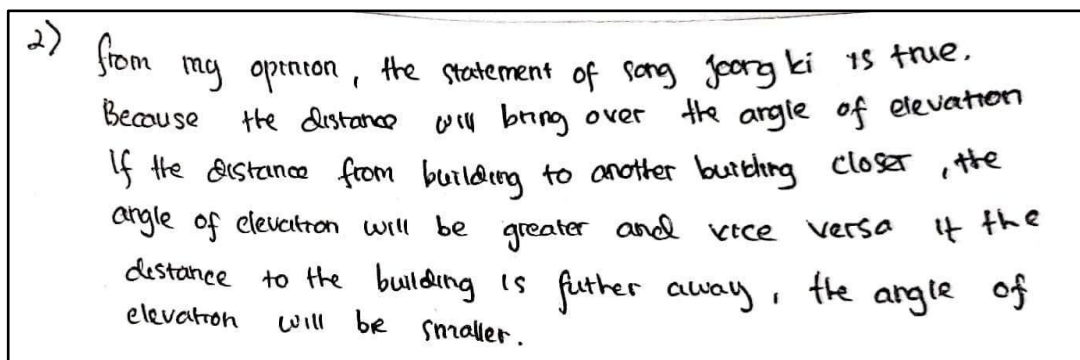 2) from my opinion, the statement of song joong ki is true.
Because the distance will bring over the angle of elevation
If the distance from building to another building closer, the
angle of elevation will be greater and vice versa if the
distance to the building is futher away, the angle of
elevation will be smaller.